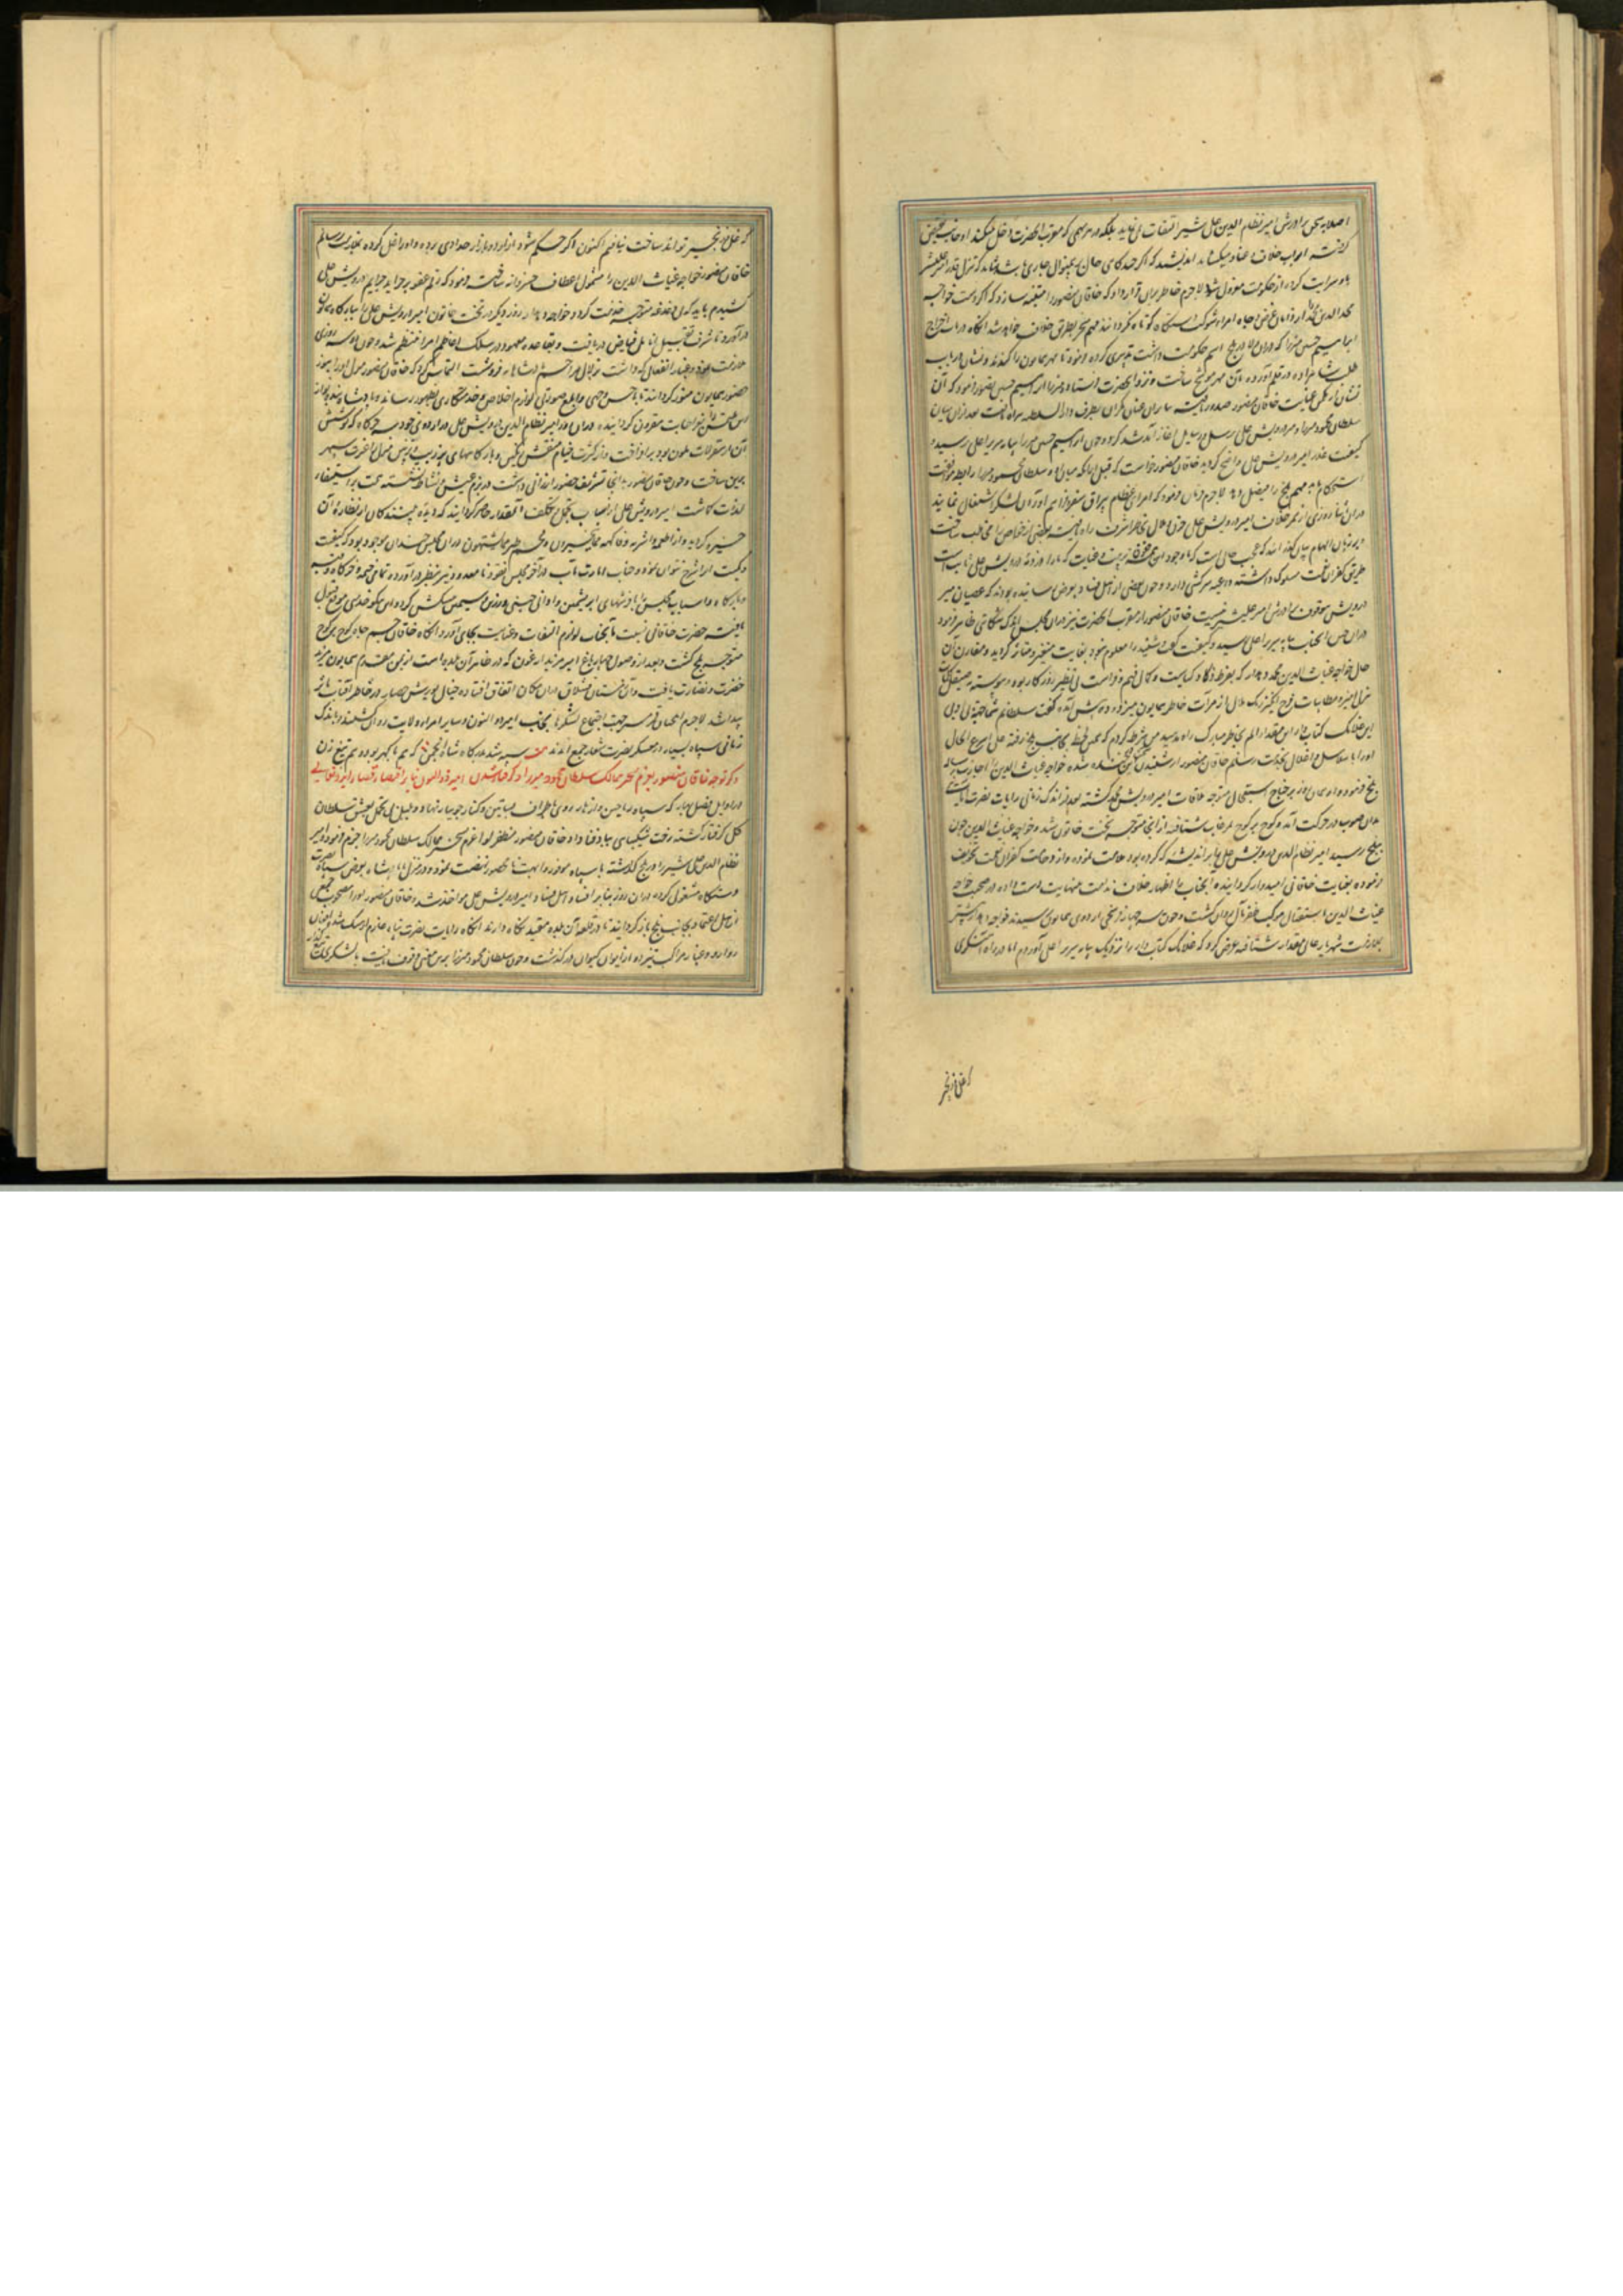 اصلا بسخن برادرش امیر نظام الدین علی شیر التفات نمی نماید بلکه در هر مهمی که مقرب الحضرت دخل میکند او جانب نقیض
گرفته ابواب خلاف و عناد میکشاید اندیشید که اگر چند گاهی حال برینمنوال جاری باشد شاید که تنزل قدر امیر علیشیر
باو سرایت کرده از حکومت معزول شود لاجرم خاطر بران قرار داد که خاقان منصور را متنبه سازد که اگر دست خواجه
مجد الدین محمد از دامان عرض و جاه امراء شوکت دستگاه کوتاه نگرداند مهم منجر بطریق خلاف خواهد شد آنگاه در باب اخراج
ابراهیم حسین میرزا که دران ولا در بلخ اسم حکومت داشت تدبیری کرده
طلب شاهزاده در قلم آورده آن مهر موشح ساخت و نزد آنحضرت فرستاد و میرزا ابراهیم حسین تصور نمود که آن
نشان از مکمن عنایت خاقان منصور صدور یافته بنابران عنان یکران بطرف دار السلطنه هراة تافت بعد ازان میان
سلطان محمود میرزا و میر درویش علی رسل و رسایل آغاز آمد شد کرد و چون ابراهیم حسین میرزا بپایه سریر اعلی رسید و
کیفیت غدر امیر درویش علی واضح گردید خاقان منصور خواست که قبل ازانکه میان او و سلطان محمود میرزا رابطه موافقت
استحکام یابد مهم بلخ را فیصل دهد لاجرم فرمان فرمود که امراء عظام بیراق سفر و فراهم آوردن لشکر اشتغال نمایند
دران اثنا روزی از ممر خلاف امیر درویش علی حزن و ملال بخاطر اشرف راه یافته بعضی از خواص را مخاطب ساخت
و بر زبان الهام بیان گذرانید که عجب حالی است که با وجود این همه
طریق کفران نعمت مسلوک داشته داعیه سرکشی دارد و چون بعضی از اهل فساد بعرض رسانیده بودند که عصیان میر
درویش موقوف برادرش امیر علیشیر نیست خاقان منصور از مقرب الحضرت نیز دران مجلس اندک شکایتی ظاهر فرمود
دران حین آنجناب بپایه سریر اعلی رسید و کیفیت گفت و شنید را معلوم نمود بغایت متغیر و متاثر گردید و مقارن آن
حال خواجه غیاث الدین محمد دهدار که بفرط ذکا و کیاست و کمال فهم و فراست بی نظیر روزگار بود و پیوسته بصیقل کلمات
هزل آمیز و مطایبات فرح انگیز زنگ ملال از مرآت خاطر همایون میزدود پیش آمده گفت سلطانم شما جهة بی دولتی
این غلامک کتابدار این مقدار الم بخاطر مبارک راه مدهید من شرط کردم که همین لحظه بجانب بلخ رفته علی اسرع الحال
او را با سلاسل و اغلال بخدمت رسانم خاقان منصور از شنیدن این سخن خندان شده خواجه غیاث الدین را اجازت رسالت
بلخ فرمود و او همان روز بر جناح استعجال متوجه ملاقات امیر درویش علی گشته بعد از اندک زمانی رایات نصرت آیات
بدان صوب در حرکت آمد و کوچ بر کوچ بمرغاب شتافته ازانجا متوجه تخت خاتون شد و خواجه غیاث الدین چون
ببلخ رسید امیر نظام الدین درویش علی را بر اندیشه که کرده بود ملامت نموده و از وخامت کفران نعمت تخویف
فرموده بعنایت خاقانی امیدوار گردانید و آنجناب را از اظهار خلاف ندامت بینهایت دست داده در صحبت خواجه
غیاث الدین باستقبال موکب ظفر مآل روان گشت و چون سه چهار فرسخی اردوی همایون رسیدند خواجه دهدار پیشتر
بملازمت شهریار عالی مقدار شتافته عرض کرد که غلامک کتابدار را نزدیک بپایه سریر اعلی آوردم اما در راه آهنگری
که غل و زنجیر
که غل و زنجیر تواند ساخت نیافتم اکنون اگر حکم شود از اردو بازار حدادی برده و او را غل کرده بملازمت رسانم
خاقان منصور خواجه غیاث الدین را مشمول اعطاف خسروانه ساخت و فرمود که رقم عفو بر جراید جرایم درویش علی
کشیدم باید که بی دغدغه متوجه خدمت گردد و خواجه دهدار روز دیگر در تخت خاتون امیر درویش علی را ببارگاه همایون
درآورد تا شرف تقبیل انامل فیاض دریافت و بقاعده معهود در سلک اعاظم امرا منتظم شد و چون دو سه روزی
ملازمت نمود و غبار انفعالی که داشت بزلال مراحم شاهانه فروشست التماس کرد که خاقان منصور منزل او را بیمن
حضور همایون منور گرداند تا باحسن وجهی و ابلغ صورتی لوازم اخلاص و خدمتکاری بظهور رساند و پادشاه بنده نواز
این ملتمس را بعز اجابت مقرون گردانیده دران روز امیر نظام الدین درویش علی در اردوی خود سه خرگاه که پوشش
آن از سقرلاط ملون بود برافراخت و از کثرت خیام منقش نفیس و بارگاههای زیب و تزیین منزل را غیرت سپهر
برین ساخت و چون خاقان منصور بدانجا تشریف حضور ارزانی داشت در بزم عیش و نشاط نشسته همت بر استیفاء
لذات گماشت امیر درویش علی از اسباب تجمل و تکلف آنمقدار حاضر گردانید که دیده بینندگان از نظاره آن
خیره گردید و از اطعمه و اشربه و فاکهة مما یتخیرون و لحم طیر مما یشتهون دران مجلس چندان موجود بود که کیفیت
و کمیت آنرا شرح نتوان نمود و جناب امارت مآب در آخر مجلس نقود نامعدود نیز بنظر درآورده تمامی خیمه و خرگاه و قبه
و بارگاه و اسباب مجلس را با فرشهای ابریشمین و اوانی چینی و زرین و سیمین پیشکش کرد و این نیکو خدمتی موقع قبول
یافته حضرت خاقانی نسبت بآنجناب لوازم التفات و عنایت بجای آورد آنگاه خاقان جم جاه کوچ بر کوچ
متوجه بلخ گشت و بعد از وصول چهارباغ امیر مزید ارغون که در ظاهر آن بلده است از یمن مقدم همایون مزید
خضرت و نضارت یافت و آن زمستان قشلاق دران مکان اتفاق افتاده خیال یورش حصار در خاطر آفتاب مآثر
پیدا شد لاجرم ایلچیان قمر سرعت بجهت اجتماع لشکرها بجانب امیر ذو النون و سایر امراء ولایت روان شدند و باندک
زمانی سپاه بسیار در معسکر نصرت شعار جمع آمدند بیت سپه شد بدرگاه شاه انجمن که هم با گهر بود و هم تیغ زن
ذکر توجه خاقان منصور بعزم تسخیر ممالک سلطان محمود میرزا و گرفتار شدن امیر ذو النون بنابر اقتضاء قضاء ایزد تعالی
در اوایل فصل بهار که سپاه ریاحین و ازهار روی باطراف بساتین و کنار جویبار نهاد و بلبل بی تحمل بعشق سلطان
گل گرفتار گشته رخت شکیبایی بباد فنا داد خاقان منصور مظفر لوا عزم تسخیر ممالک سلطان محمود میرزا جزم فرمود و امیر
نظام الدین علی شیر را در بلخ گذاشته با سپاه موفور و ابهت نامحصور نهضت نمود و در منزل
و دستگاه مشغولی کرده دران روز بنابر افساد اهل فساد امیر درویش علی مواخذ شد و خاقان منصور او را مصحوب جمعی
از اهل اعتماد بجانب بلخ بازگردانید تا در قلعه آن بلده مقید نگاه دارند آنگاه رایات نصرت پناه عازم ارسک شد و افغان
روا رو و غبار مراکب تیزرو از ایوان کیوان درگذشت و چون سلطان محمود میرزا برین معنی وقوف یافت با لشکری